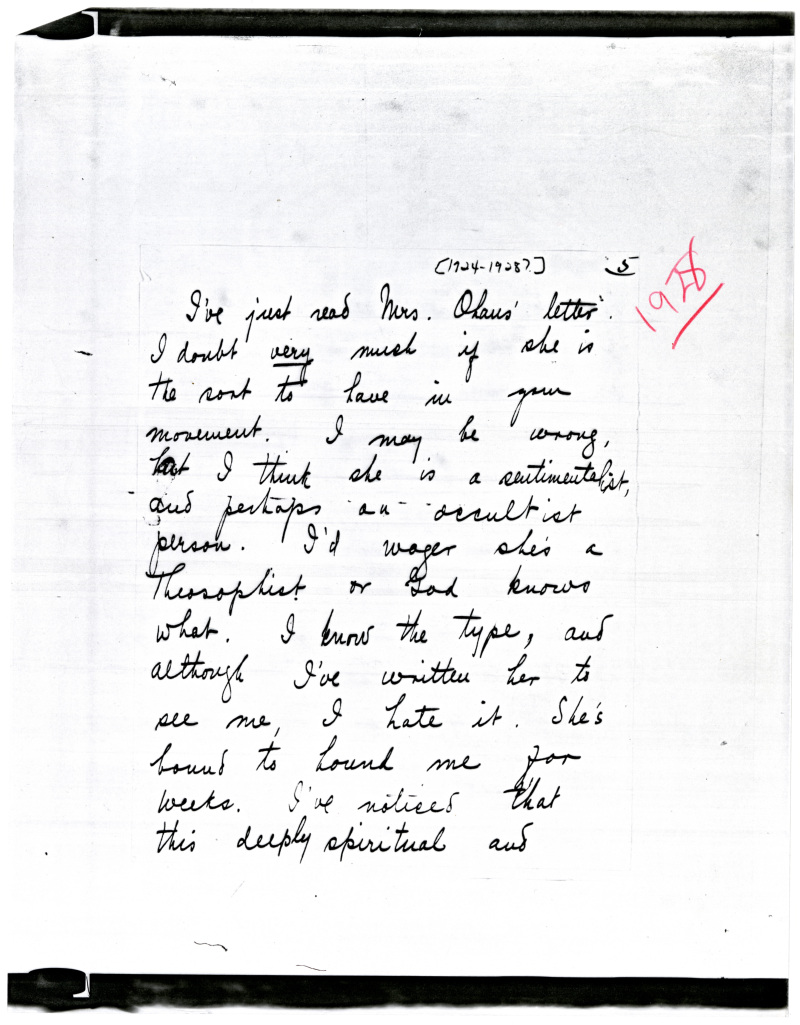 [1924-1928?] 5
1928
I've just read Mrs. Ohaus' letter.
I doubt very much if she is
the sort to have in your
movement. I may be wrong,
but I think she is a sentimentalist,
and perhaps an occultist
person. I'd wager she's a
Theosophist or God knows
what. I know the type, and
although I've written her to
see me, I hate it. She's
bound to hound me for
weeks. I've noticed that
this deeply spiritual and